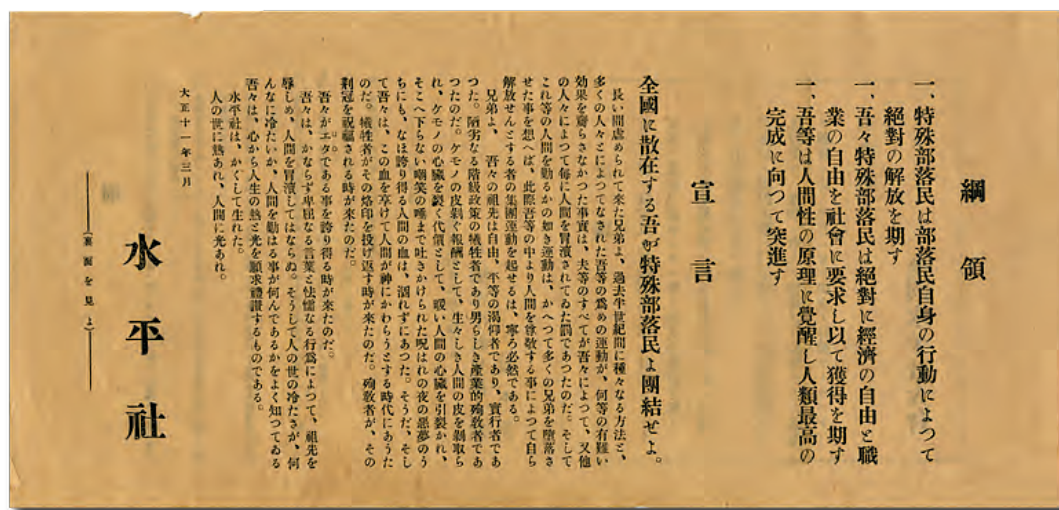 綱領
一、特殊部落民は部落民自身の行動によつて
絕對の解放を期す
一、吾々特殊部落民は絕對に經濟の自由と職
業の自由を社會に要求し以て獲得を期す
一、吾等は人間性の原理に覺醒し人類最高の
完成に向つて突進す
宣言
全國に散在する吾が特殊部落民よ團結せよ。
長い間虐められて來た兄弟よ、過去半世紀間に種々なる方法と、
多くの人々とによつてなされた吾等の爲めの運動が、何等の有難い
効果を齎らさなかつた事實は、夫等のすべてが吾々によつて、又他
の人々によつて毎に人間を冒瀆されてゐた罰であつたのだ。そして
これ等の人間を勦るかの如き運動は、かへつて多くの兄弟を墮落さ
せた事を想へば、此際吾等の中より人間を尊敬する事によつて自ら
解放せんとする者の集團運動を起せるは、寧ろ必然である。
兄弟よ、吾々の祖先は自由、平等の渴仰者であり、實行者であ
つた。陋劣なる階級政策の犧牲者であり男らしき産業的殉敎者であ
つたのだ。ケモノの皮剝ぐ報酬として、生々しき人間の皮を剝取ら
れ、ケモノの心臓を裂く代價として、暖い人間の心臓を引裂かれ、
そこへ下らない嘲笑の唾まで吐きかけられた呪はれの夜の惡夢のう
ちにも、なほ誇り得る人間の血は、涸れずにあつた。そうだ、そし
て吾々は、この血を享けて人間が神にかわらうとする時代にあうた
のだ。犧牲者がその烙印を投げ返す時が來たのだ。殉敎者が、その
荊冠を祝福される時が來たのだ。
吾々がエタである事を誇り得る時が來たのだ。
吾々は、かならず卑屈なる言葉と怯懦なる行爲によつて、祖先を
辱しめ、人間を冒瀆してはならぬ。そうして人の世の冷たさが、何
んなに冷たいか、人間を勦はる事が何んであるかをよく知つてゐる
吾々は、心から人生の熱と光を願求禮讃するものである。
水平社は、かくして生れた。
人の世に熱あれ、人間に光あれ。
大正十一年三月
水平社
(裏面を見よ)